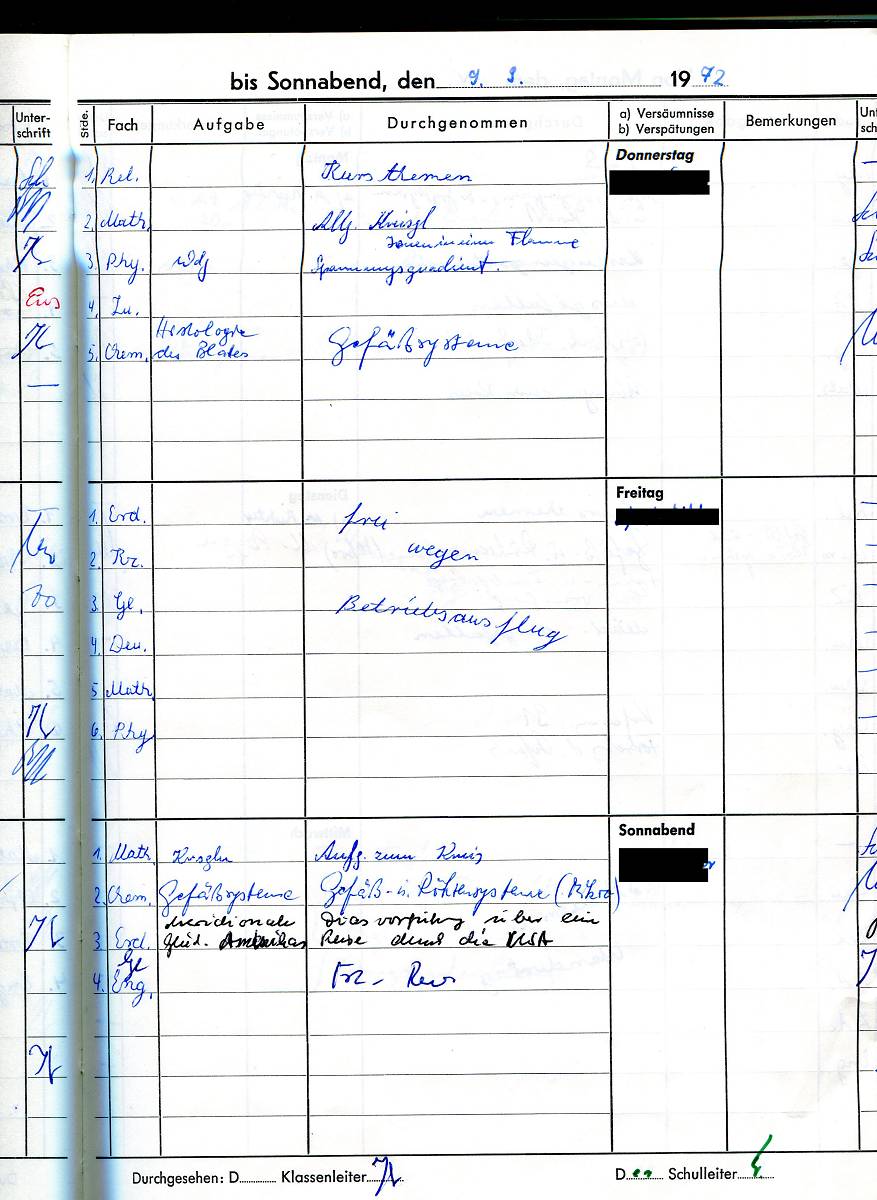 bis Sonnabend, den 9. 9. 1972
Unter-
schrift
Stde.
Fach
Aufgabe
Durchgenommen
a) Versäumnisse
b) Verspätungen
Bemerkungen
Donnerstag
1. Rel. Kursthemen
2. Math. Allg. Kreisgl
Ionen in einer Flamme
3. Phy. Wdg Spannungsgradient.
4. Lu.
Histologie
5. Chem. des Blattes Gefäßsysteme
Freitag
1. Erd. frei
2. Kr. wegen
3. Gl. Betriebsausflug
4. Deu.
5 Math.
6. Phy
Sonnabend
1. Math. Kreisgln Aufg. zum Kreis
2. Chem. Gefäßsysteme Gefäß- u. Röhrensysteme (Mikro)
meridionale Diasvorführung über eine
3. Erd. Glied. Amerikas Reise durch die USA
Gl
4. Eng. Frz - Rev
Durchgesehen: D Klassenleiter
D er Schulleiter